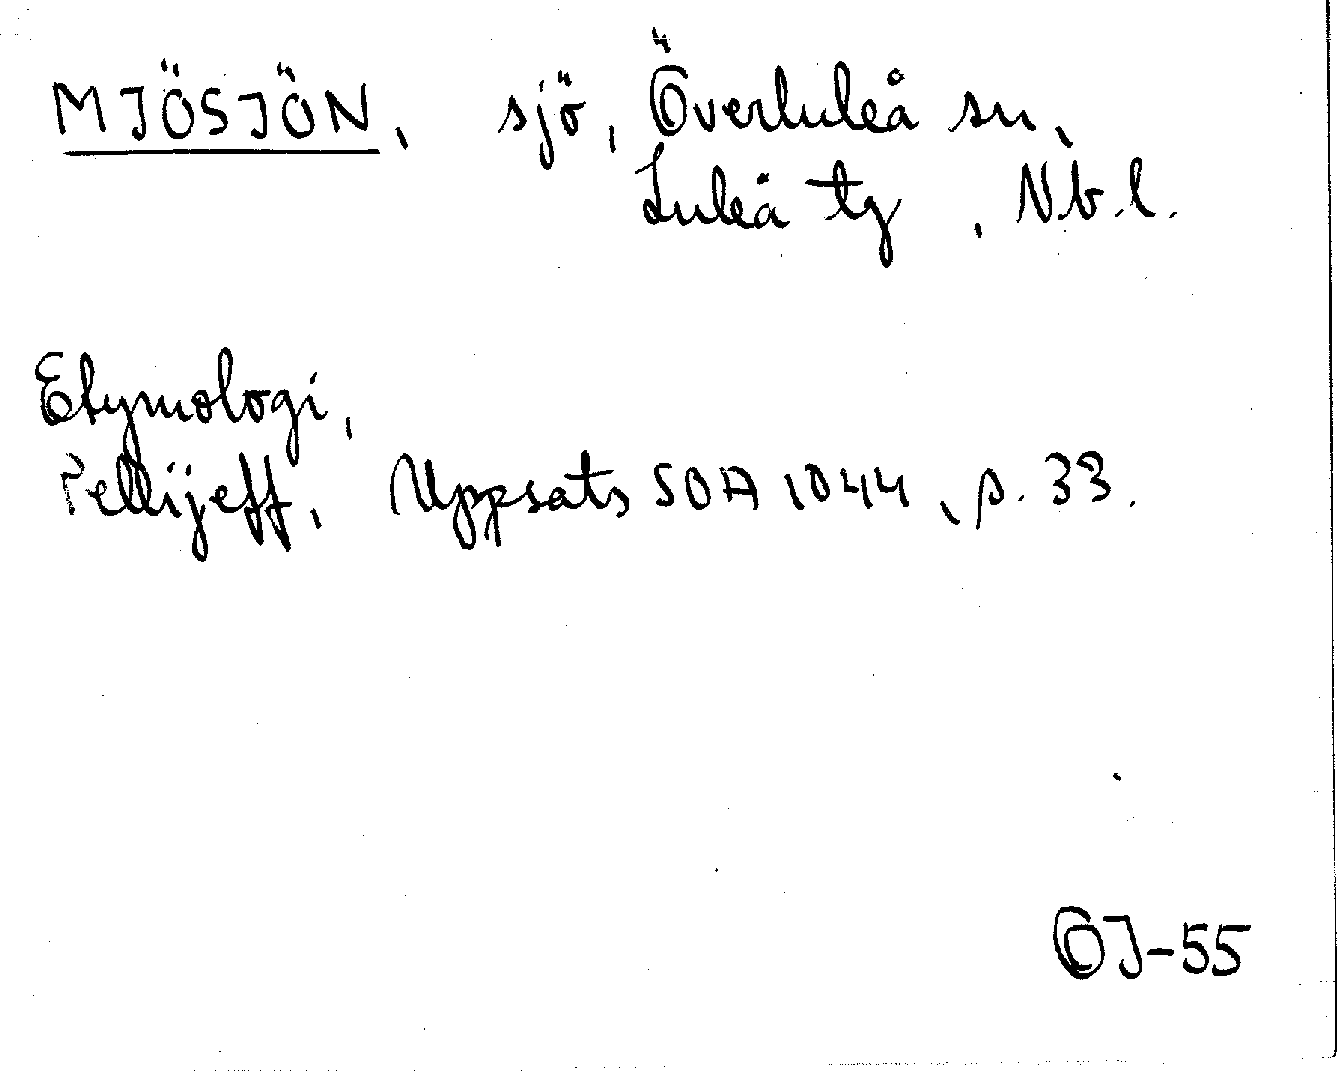 MJÖSJÖN, sjö, Överluleå sn,
Luleå tg, Nb.l.
Etymologi,
Pellijeff, Uppsats SOA 1044, s. 33.
OJ-55